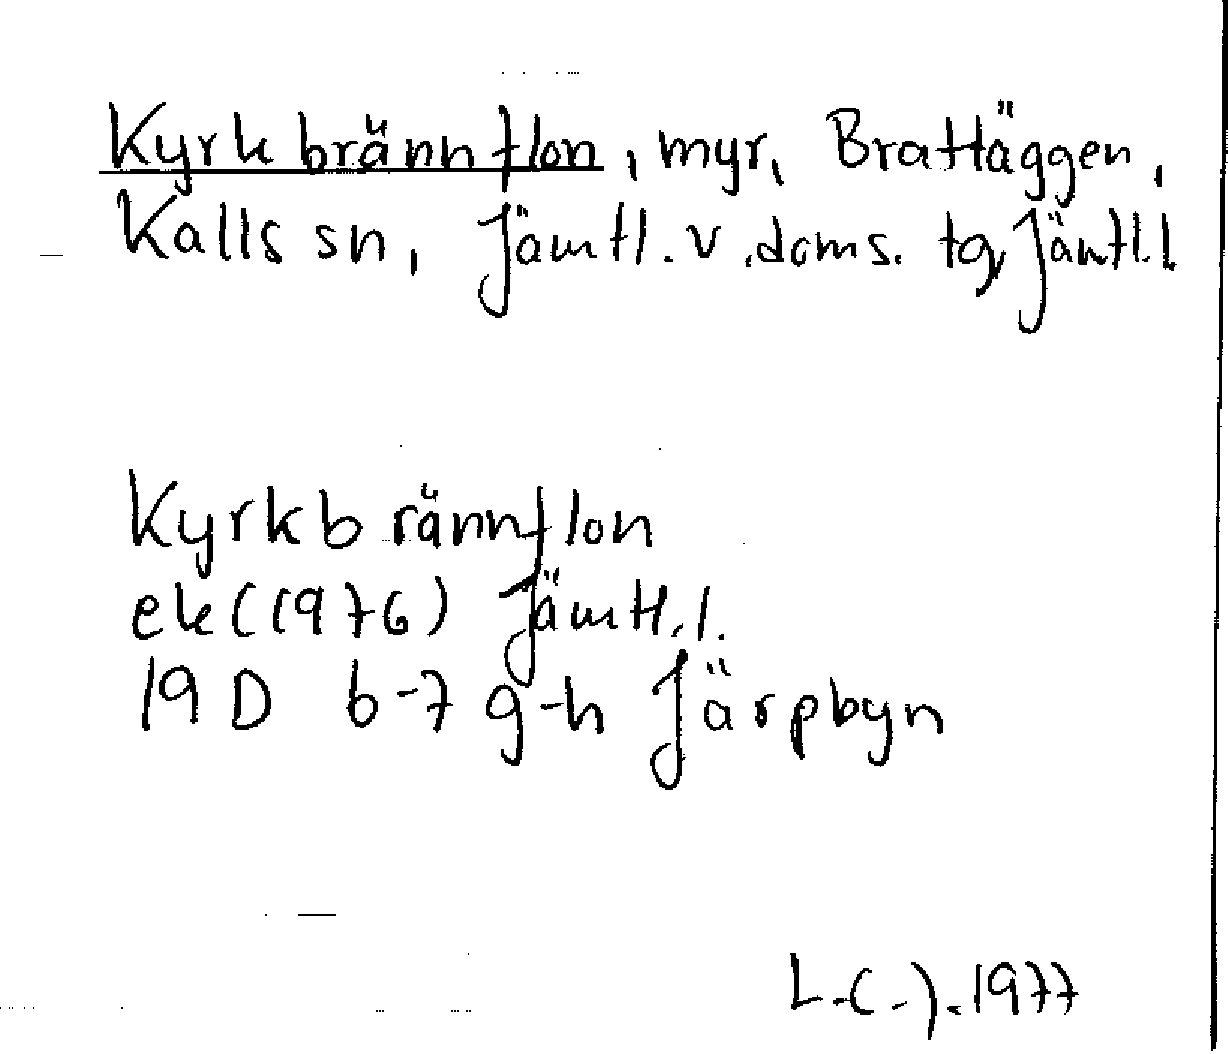 Kyrkbrännflon, myr, Brattäggen,
Kalls sn, Jämtl. v. doms. tg, Jämtl. l
Kyrkbrännflon
ek (1976) Jämtl. l.
19 D 6-7 g-h Järpbyn
L.-(-). 1977